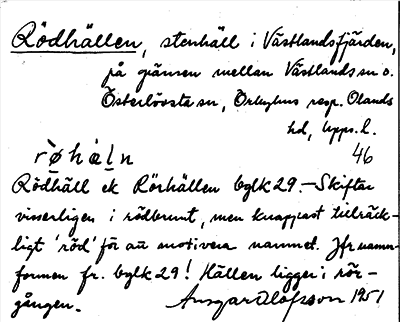 Rödhällen, stenhäll i Västlandsfjärden,
på gränsen mellan Västlands sn o.
Österlövsta sn, Örbyhus resp. Olands
hd, Upps. l.
rø̀hàḷn 46
Rödhäll ek Rörhällen bglk 29. — Skiftar
visserligen i rödbrunt, men knappast tillräck-
ligt 'röd' för att motivera namnet. Jfr namn-
formen fr. bglk 29! Hällen ligger i rör-
gången. Ansgar Olofsson 1951